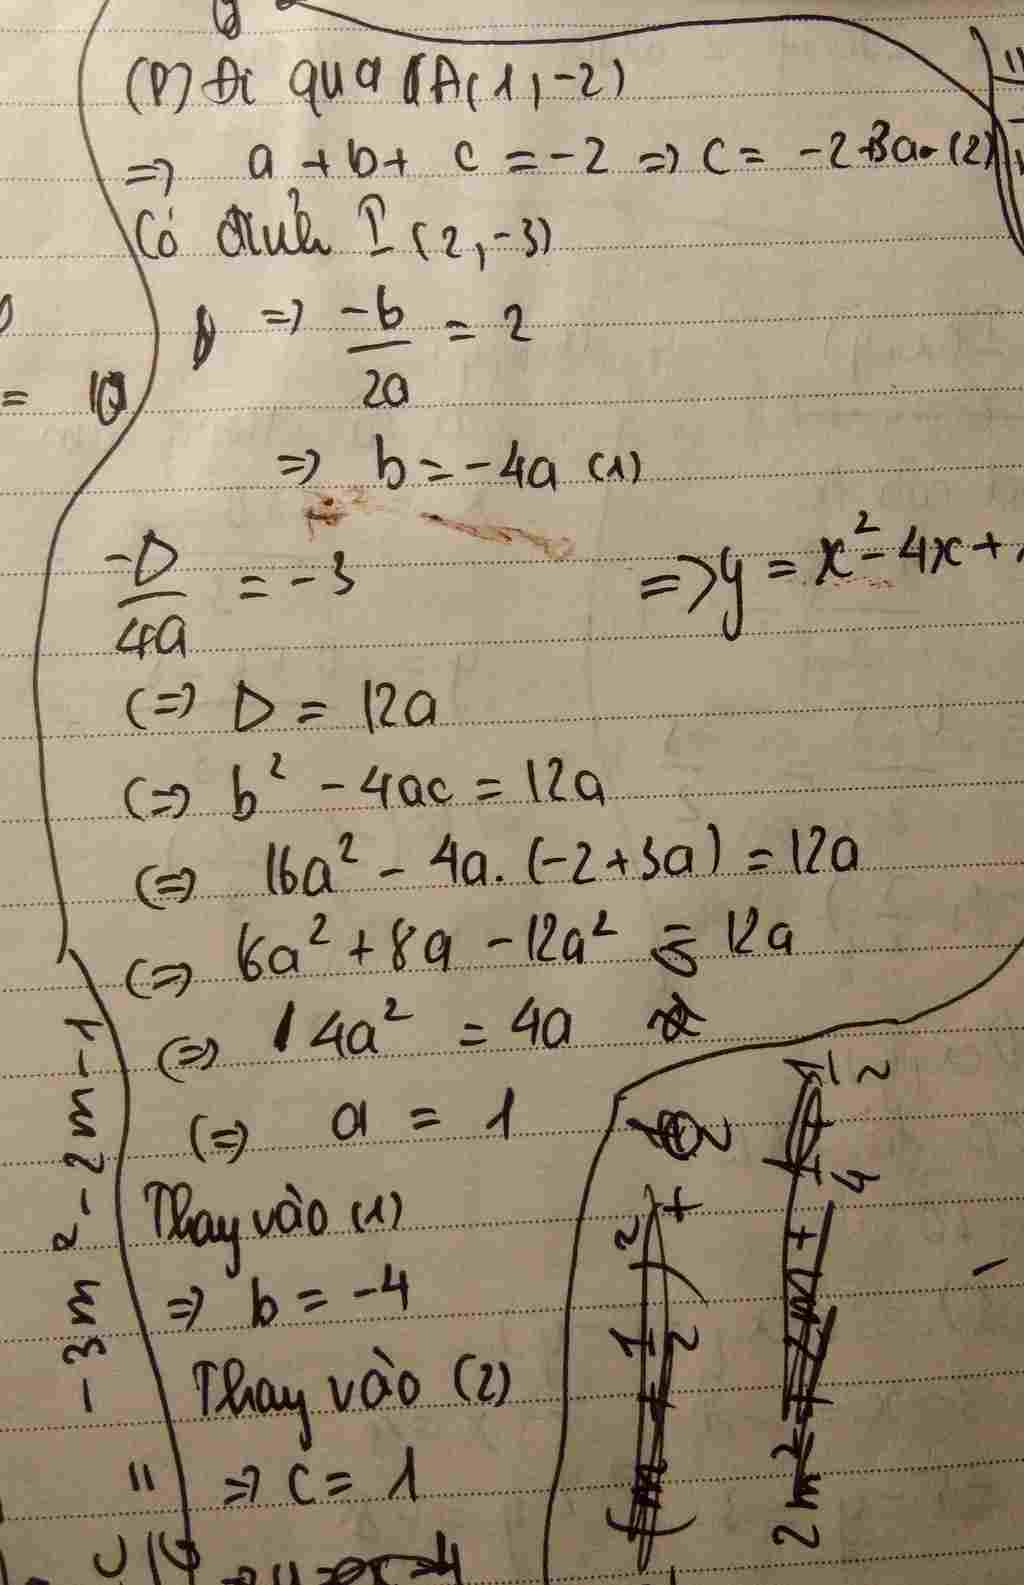 (P) đi qua A(1, -2)
=> a + b + c = -2 => c = -2 + 3a (2)
Có đỉnh I (2, -3)
=> -b/2a = 2
= 10
=> b = -4a (1)
-Δ/4a = -3
=> y = x² - 4x +
(=> Δ = 12a
(=> b² - 4ac = 12a
(=> 16a² - 4a. (-2 + 3a) = 12a
(=> 6a² + 8a - 12a² = 12a
(=> 4a² = 4a
(=> a = 1
Thay vào (1)
=> b = -4
Thay vào (2)
" => c = 1
- 3m² - 2m - 1